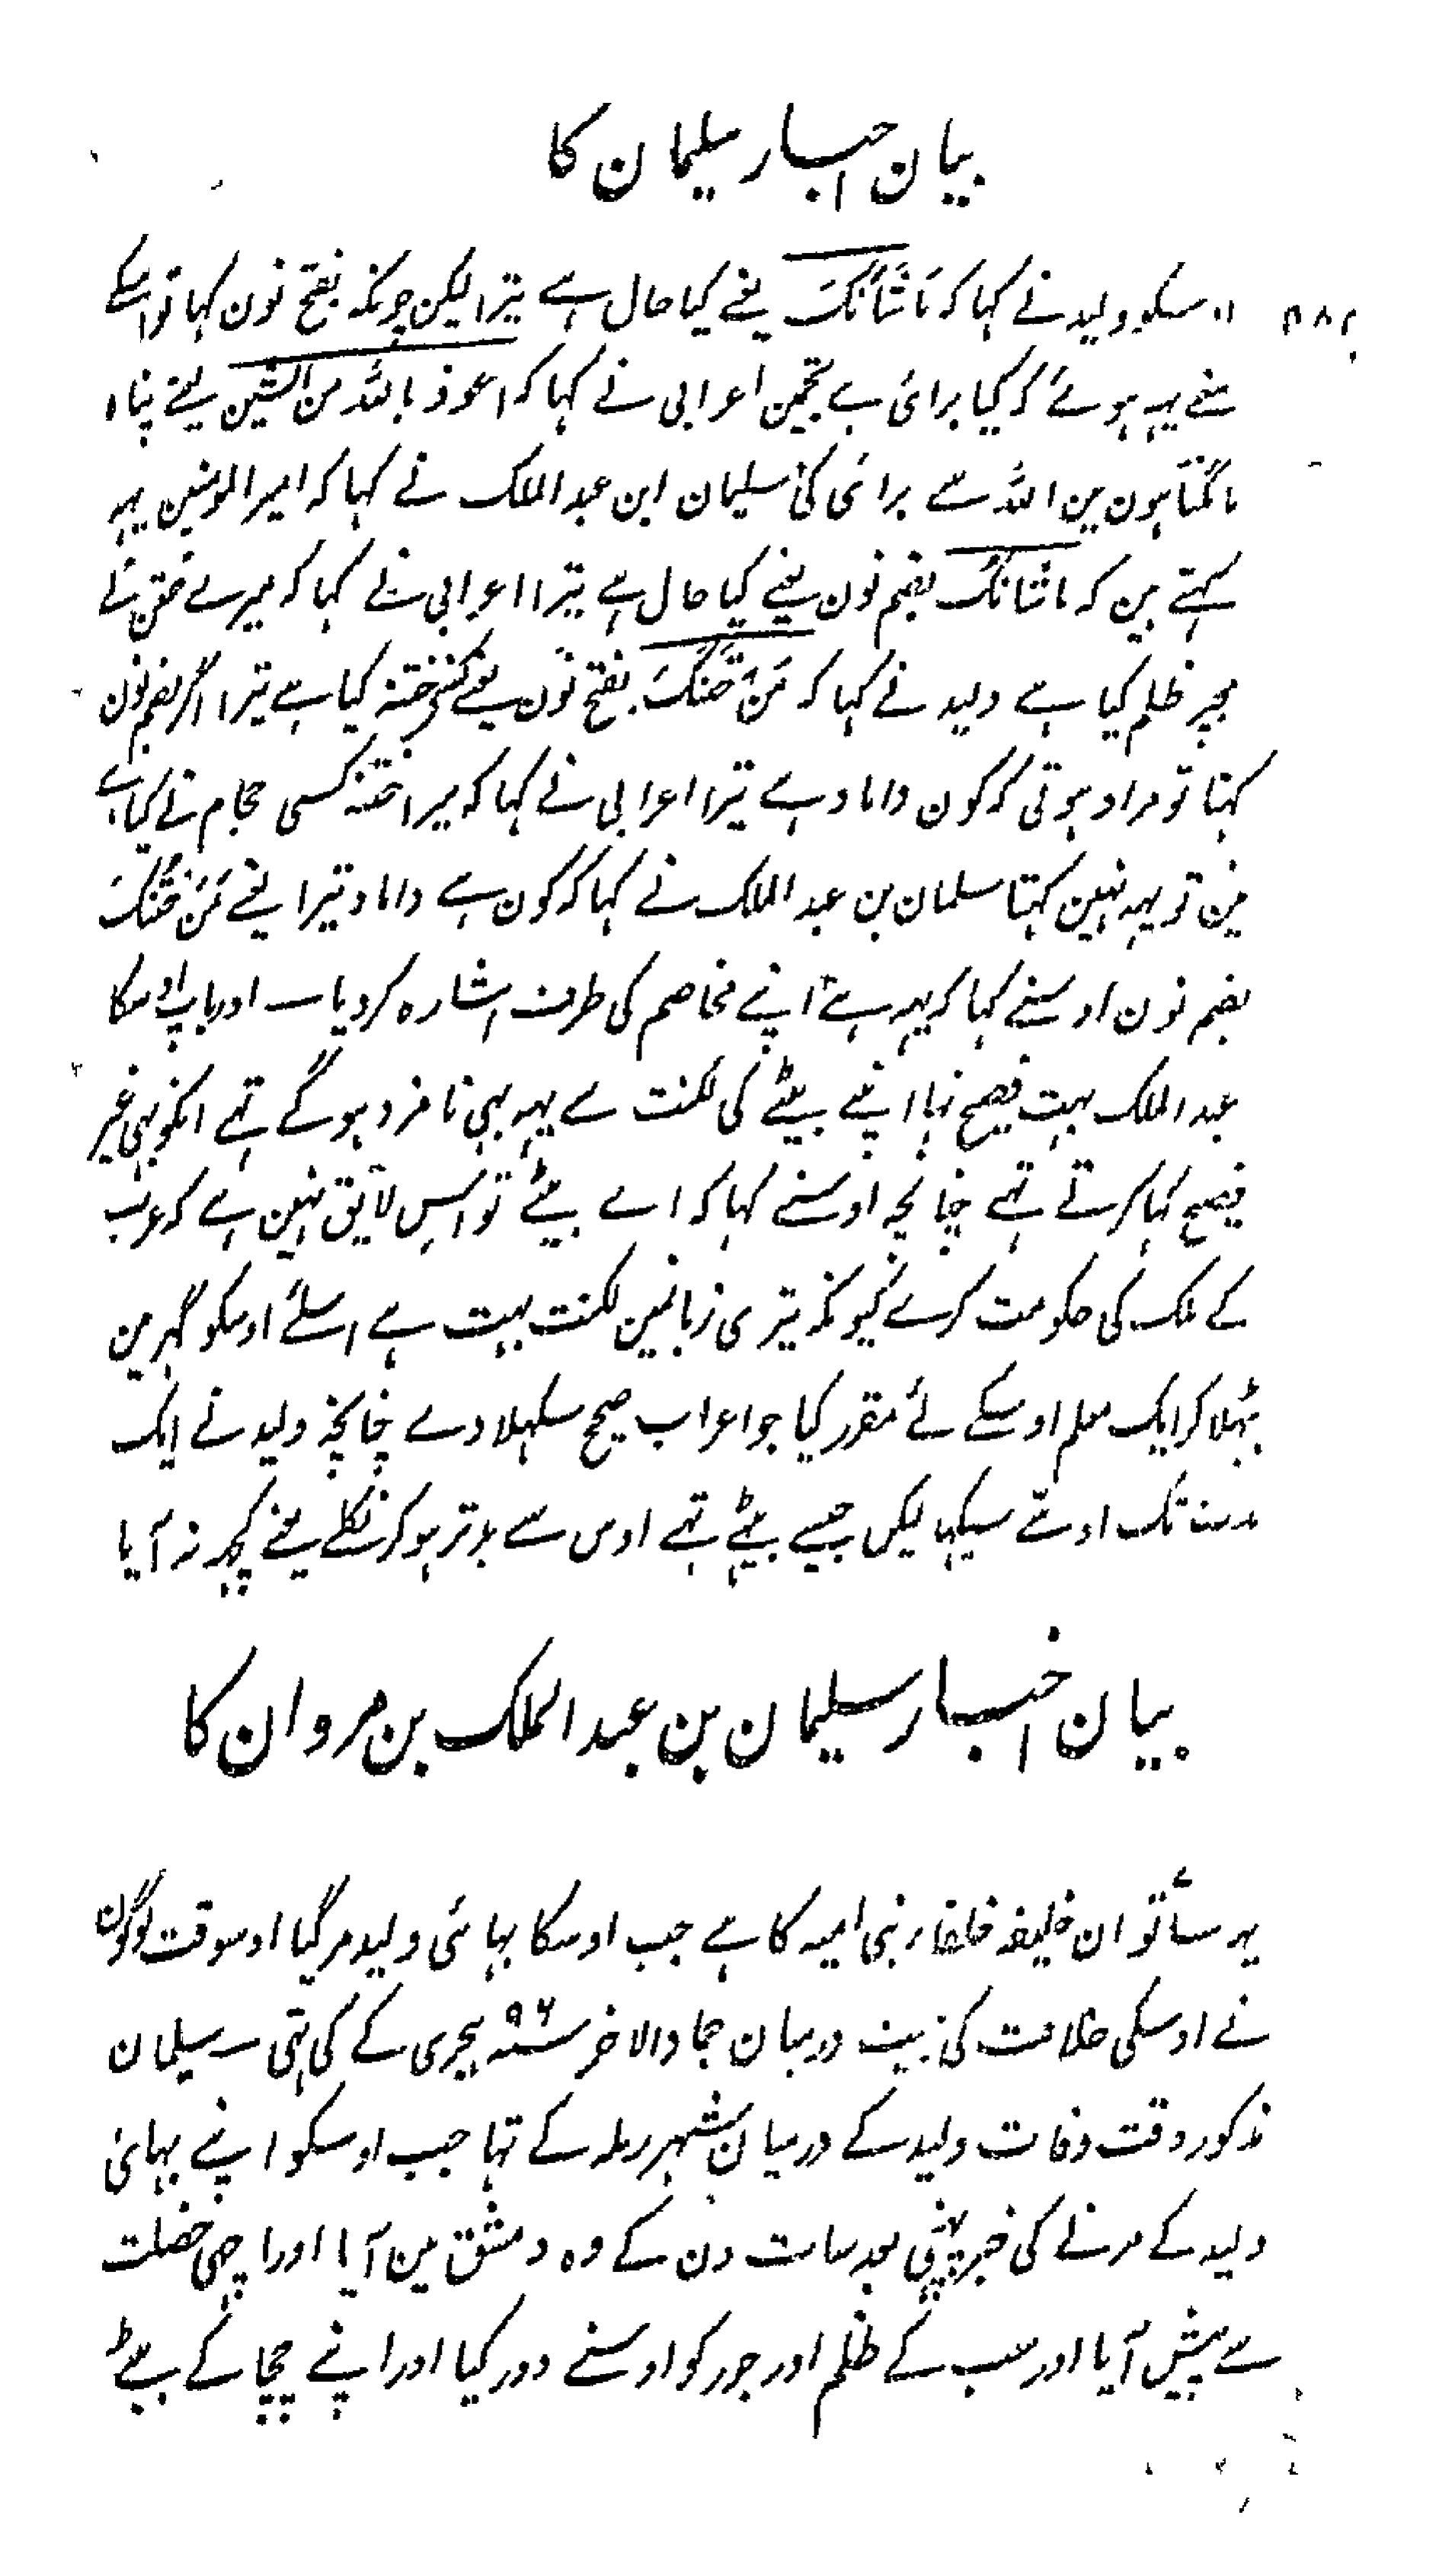 بیان اخبار سلیمان کا
۴۸۲
اوسکو ولید نے کہا کہ مَاشَانَکَ یعنے کیا حال ہے تیرا لیکن چونکہ بفتح نون کہا تو اسکے
معنے یہہ ہوئے کہ کیا برائی ہے تجمین اعرابی نے کہا کہ اعوذ باللہ من الشین یعنے پناہ
مانگتا ہون مین اللہ سے برائی کی سلیمان ابن عبد الملک نے کہا کہ امیر المومنین یہہ
کہتے ہین کہ ماشانُک بضم نون یعنے کیا حال ہے تیرا اعرابی نے کہا کہ میرے ختن نے
مجپر ظلم کیا ہے ولید نے کہا کہ مَنْ خَتَنَکَ بفتح نون یعنے کسنے ختنہ کیا ہے تیرا اگر بضم نون
کہتا تو مراد ہوتی کہ کون داماد ہے تیرا اعرابی نے کہا کہ میرا ختنہ کسی حجام نے کیا ہے
مین تو یہہ نہین کہتا سلمان بن عبد الملک نے کہا کہ کون ہے داماد تیرا یعنے مَنْ خَتَنُکَ
بضم نون اوسنے کہا کہ یہہ ہے اپنے مخاصم کی طرف اشارہ کر دیا ۔ اور باپ اوسکا
عبد الملک بہت فصیح تہا اپنے بیٹے کی لکنت سے یہہ بہی نامزد ہو گے تہے انکو بہی غیر
فصیح کہا کرتے تہے چنانچہ اوسنے کہا کہ اے بیٹے تو اس لایق نہین ہے کہ عرب
کے ملک کی حکومت کرے کیونکہ تیری زبانمین لکنت بہت ہے اسلئے اوسکو گہر مین
بہٹلا کر ایک معلم اوسکے لئے مقرر کیا جو اعراب صحیح سکہلا دے چنانچہ ولید نے ایک
مدت تک اوسے سیکہا لیکن جیسے بیٹے تہے اوس سے بدتر ہو کر نکلے یعنے کچہہ نہ آیا
بیان اخبار سلیمان بن عبد الملک بن مروان کا
یہہ ساتوان خلیفہ خلفاء بنی امیہ کا ہے جب اوسکا بہائی ولید مر گیا اوسوقت لوگون
نے اوسکی خلافت کی بیت درمیان جماد الاخر سنہ ۹۶ ہجری کے کی تہی ۔ سلیمان
مذکور وقت وفات ولید کے درمیان شہر رملہ کے تہا جب اوسکو اپنے بہائی
ولید کے مرنے کی خبر پہنچی بعد سات دن کے وہ دمشق مین آیا اور اچہی خصلت
سے پیش آیا اور سب کے ظلم اور جور کو اوسنے دور کیا اور اپنے چچا کے بیٹے